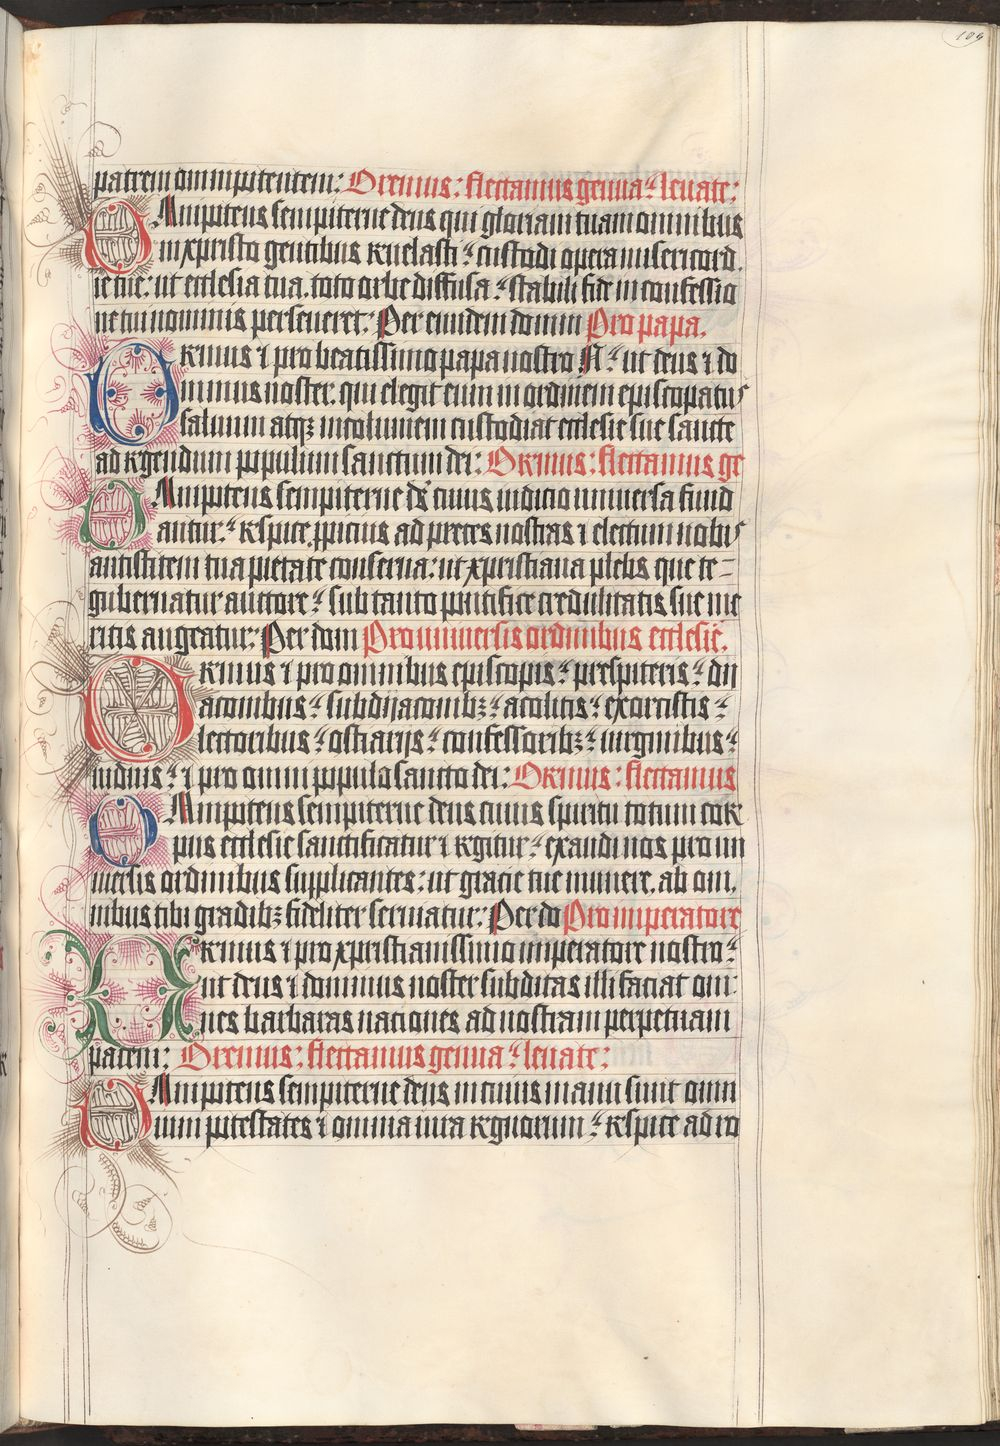 109
patrem omnipotentem: Oremus: flectamus genua: leuate:
OMnipotens sempiterne deus qui gloriam tuam omnibus
in xpristo gentibus reuelasti: custodi opera misericord,
ie tue: ut ecclesia tua, toto orbe diffusa, stabili fide in confessio
ne tui nominis perseueret: Per eundem domin Pro papa,
Oremus ⁊ pro beatissimo papa nostro N: ut deus ⁊ do
minus noster, qui elegit eum in ordinem episcopatus
saluum atqꝫ incolumem custodiat ecclesie sue sancte
ad regendum populum sanctum dei: Oremus: flectamus ge
OMnipotens sempiterne ds cuius iudicio uniuersa fund
antur: respice ꝓpicius ad preces nostras ⁊ electum nobis
antistitem tua pietate conserua: ut xpristiana plebs que te
gubernatur auctore: sub tanto pontifice credulitatis sue me
ritis augeatur: Per dom Pro uniuersis ordinibus ecclesie,
Oremus ⁊ pro omnibus episcopis: presbiteris: dii
aconibus: subdijaconibꝫ: acolitis: exorcistis:
lectoribus: ostiarijs: confessoribꝫ: uirginibus:
uiduis: ⁊ pro omni populo sancto dei: Oremus: flectamus
OMnipotens sempiterne deus cuius spiritu totum cor
pus ecclesie sanctificatur ⁊ regitur: exaudi nos pro un
iuersis ordinibus supplicantes: ut gracie tue munere, ab om,
nibus tibi gradibꝫ fideliter seruiatur: Per do Pro imperatore
Oremus ⁊ pro xpristianissimo imperatore nostro:
ut deus ⁊ dominus noster subditas illi faciat om
nes barbaras naciones ad nostram perpetuam
pacem: Oremus: flectamus genua: leuate:
OMnipotens sempiterne deus in cuius manu sunt omn
ium potestates ⁊ omnia iura regnorum: respice ad ro